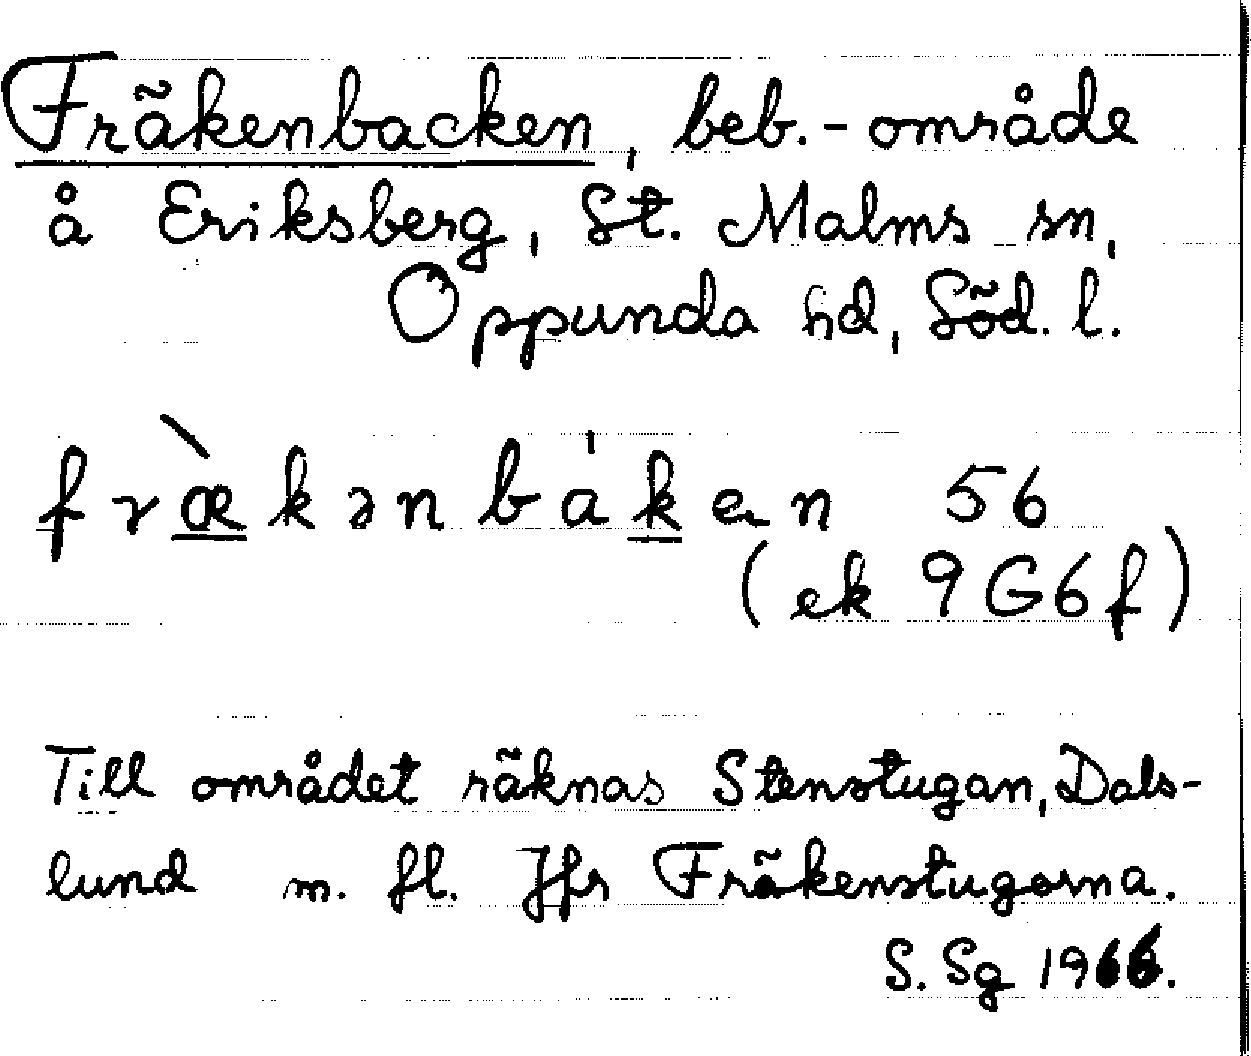 Fräkenbacken, beb.-område
å Eriksberg, St. Malms sn,
Oppunda hd, Söd. l.
fræ̀kənbáken 56
(ek 9G6f)
Till området räknas Stenstugan, Dals-
lund m. fl. Jfr Fräkenstugorna.
S. Sg 1966.